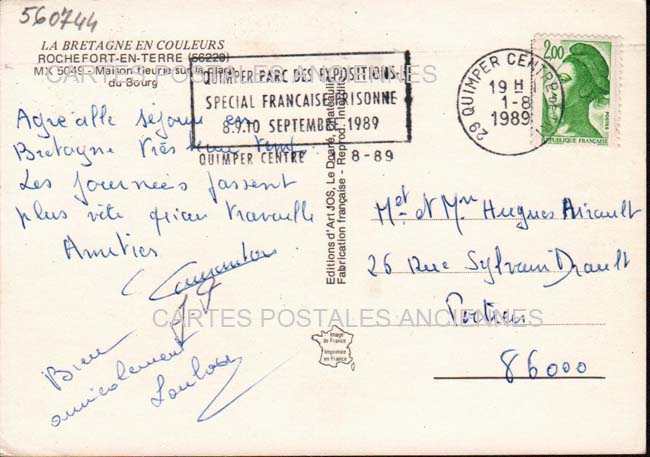 560744
LA BRETAGNE EN COULEURS
ROCHEFORT-EN-TERRE (56220)
MX 5049 - Maison fleurie sur la Place
du Bourg
QUIMPER PARC DES EXPOSITIONS
SPECIAL FRANCAISE FRISONNE
8.9.10 SEPTEMBRE 1989
QUIMPER CENTRE 1-8-89
29 QUIMPER CENTRE
19 H
1-8
1989
2,00
POSTES
REPUBLIQUE FRANÇAISE
CARTES POSTALES ANCIENNES
Agréable séjour en
Bretagne très beau temps.
Les journées passent
plus vite qu'au travaille
Amitiés
Bien
amicalement
Editions d'Art JOS, Le Doaré, Châteaulin
Fabrication française - Reprod. Interdite
Met et Mr Hugues Airault
26 Rue Sylvain Drault
Poitiers
86000
Image
de France
Imprimée
en France
CARTES POSTALES ANCIENNES